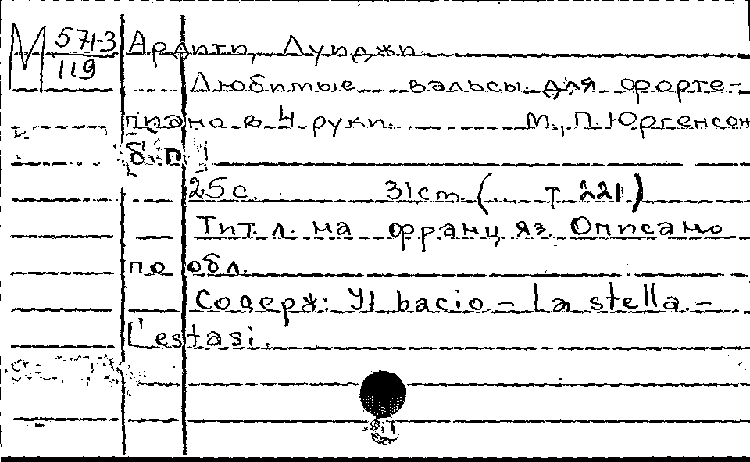 М 571-3
119
Ардити, Луиджи
Любимые вальсы для форте-
пиано в 4 руки. М., П. Юргенсон
б. п.
25 с. 31 cm (... т 221)
Тит. л. на франц яз. Описано
по обл.
Содерж: Yl bacio - La stella -
L'estasi.